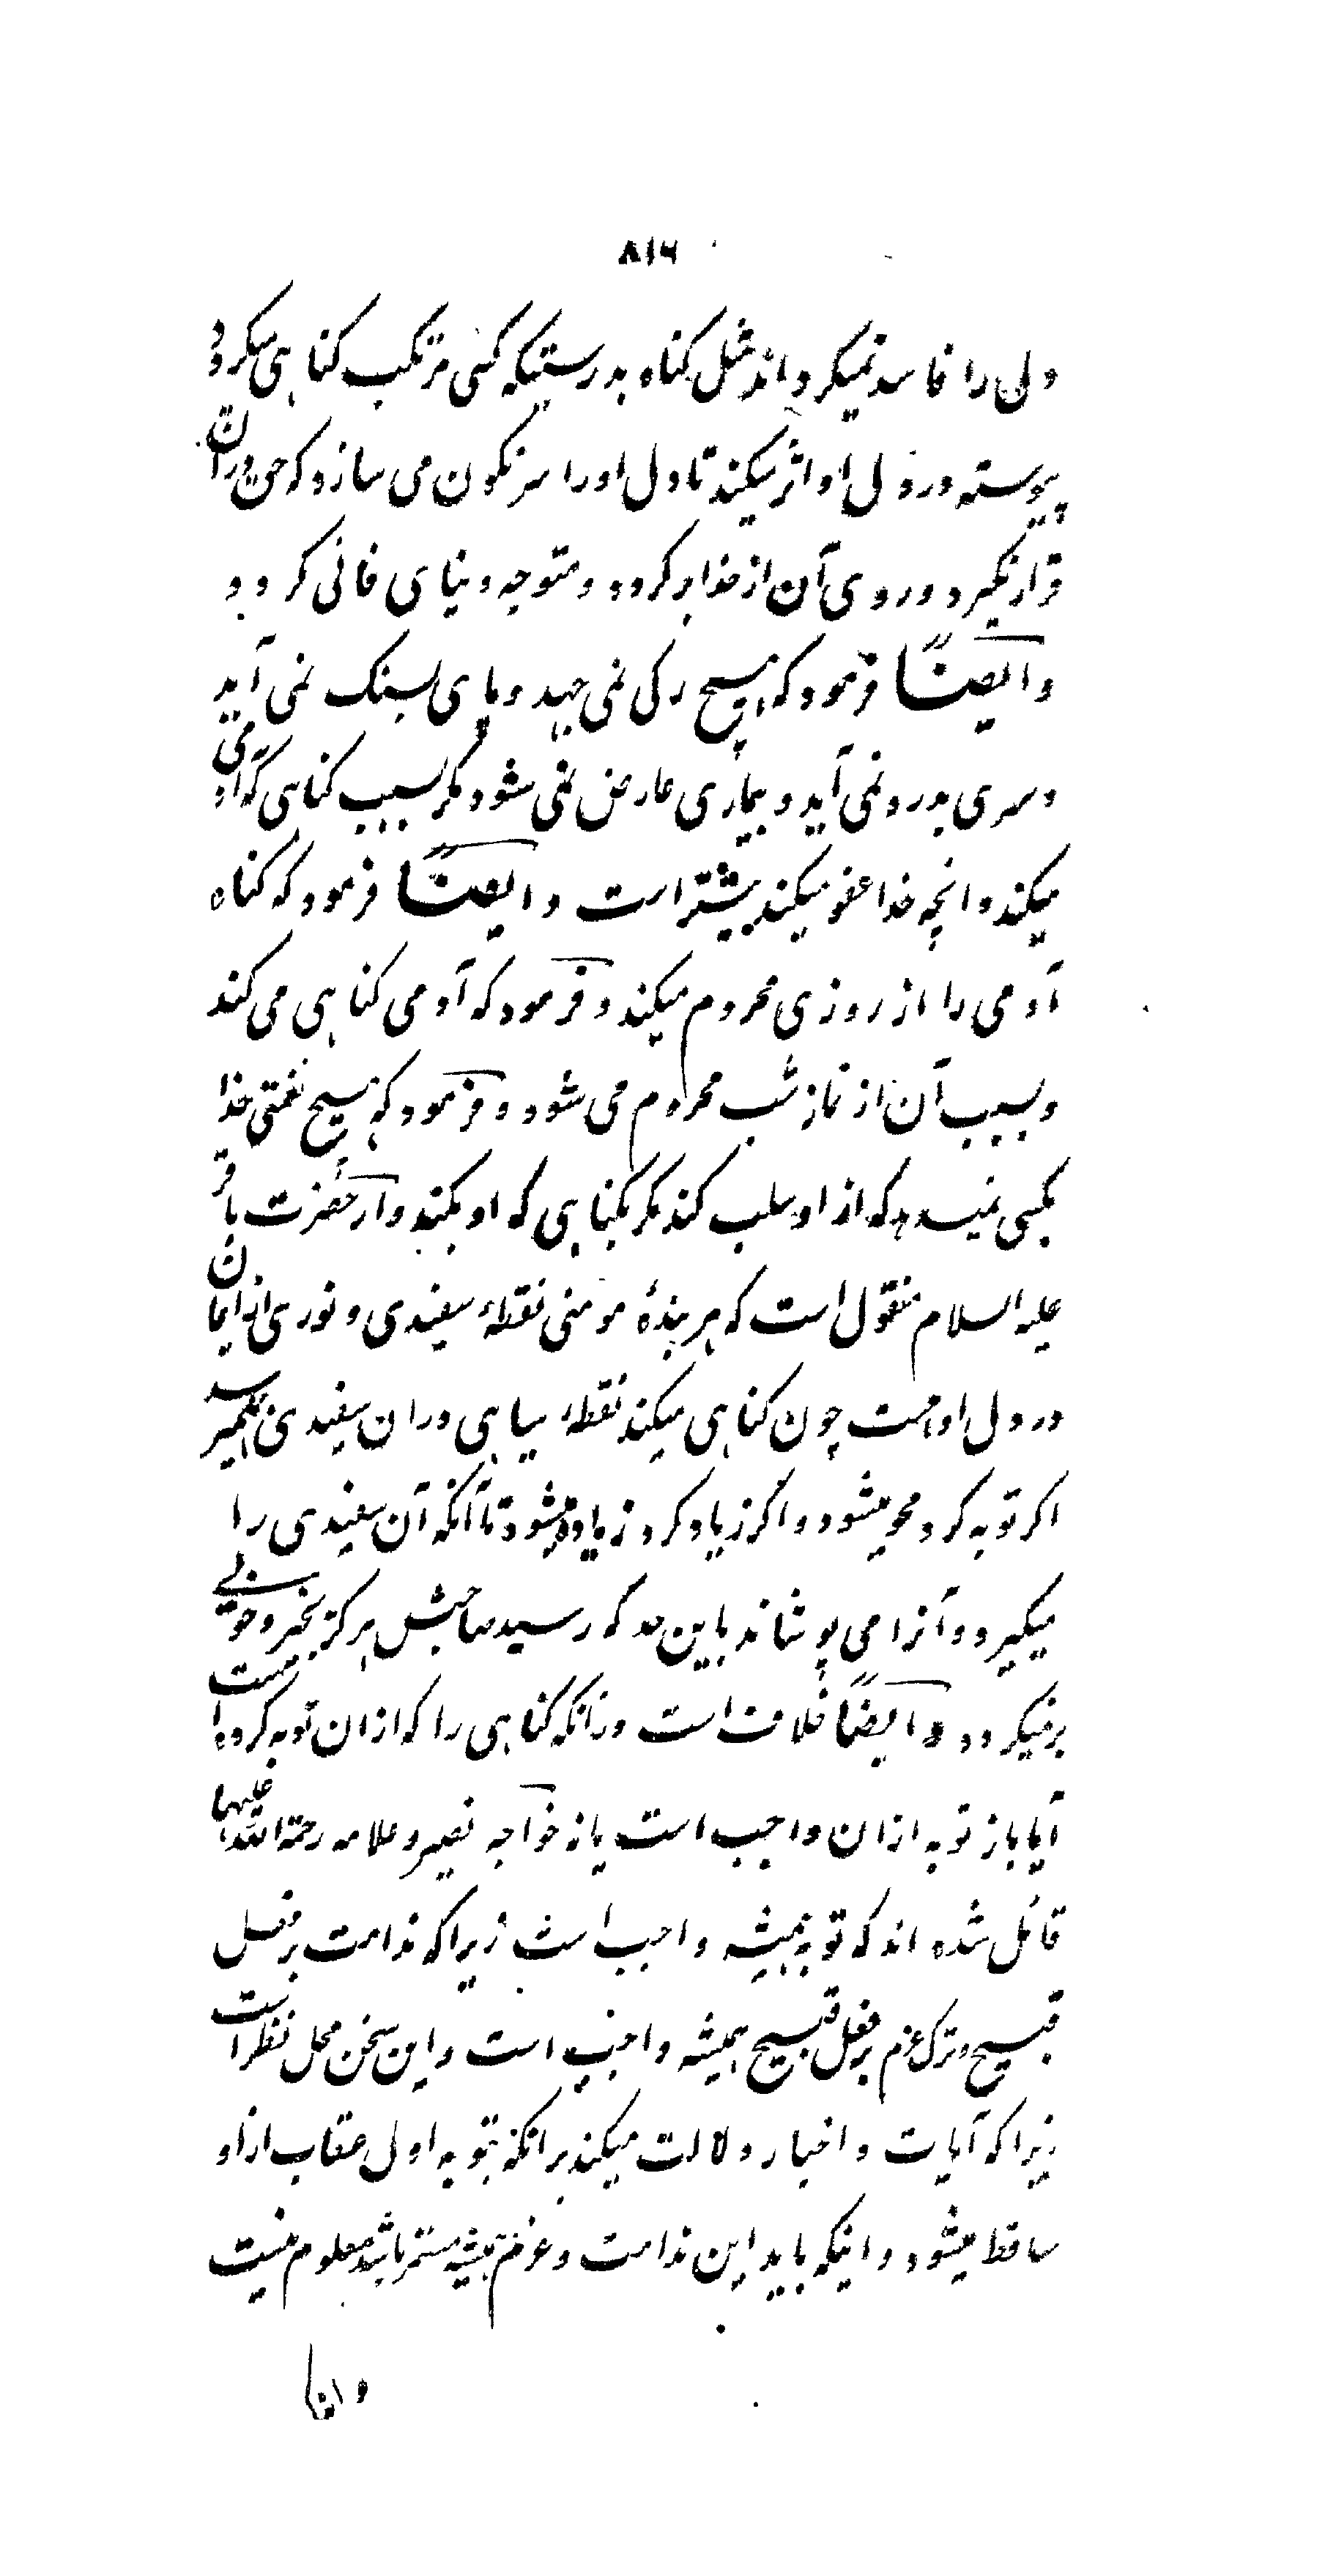 ۸۱۶
دلی را فاسد نمیکرداند مثل کناه بدرستیکه کسی مرتکب کناهی میکردد
پیوسته در دل او اثر میکند تا دل او را سرنکون می سازد که حق در ان
قرار نکیرد و روی آن از خدا برکردد و متوجه دنیای فانی کردد و
و ایضًا فرمود که هیچ رکی نمی جهد و پای بسنک نمی آید
و سری بدرد نمی آید و بیماری عارض نمی شود مکر بسبب کناهی که آدمی
میکند و انچه خدا عفو میکند بیشتر است و ایضًا فرمود که کناه
آدمی را از روزی محروم میکند و فرمود که آدمی کناهی می کند
و بسبب آن از نماز شب محروم می شود و فرمود که هیچ نعمتی خدا
بکسی نمیدهد که از او سلب کند مکر بکناهی که او بکند و از حضرت باقر
علیه السلام منقول است که هر بندهٔ مومنی نقطهٔ سفیدی و نوری از ایمان
در دل او هست چون کناهی میکند نقطهٔ سیاهی در ان سفیدی بهم میرسد
اکر توبه کرد محو میشود و اکر زیاد کرد زیاد میشود تا آنکه آن سفیدی را
میکیرد و آنرا می پوشاند باین حد که رسید صاحبش هرکز بخیر و خوبی
برنمیکردد و ایضًا خلاف است در انکه کناهی را که از ان توبه کرده است
آیا باز توبه از ان واجب است یا نه خواجه نصیر و علامه رحمة الله علیهما
قائل شده اند که توبه همیشه واجب است زیرا که ندامت بر فعل
قبیح و ترک عزم بر فعل قبیح همیشه واجب است و این سخن محل نظر است
زیرا که آیات و اخبار دلالت میکند بر انکه بتوبه اول عقاب از او
ساقط میشود و اینکه باید این ندامت و عزم همیشه مستمر باشد معلوم نیست
و ایضا